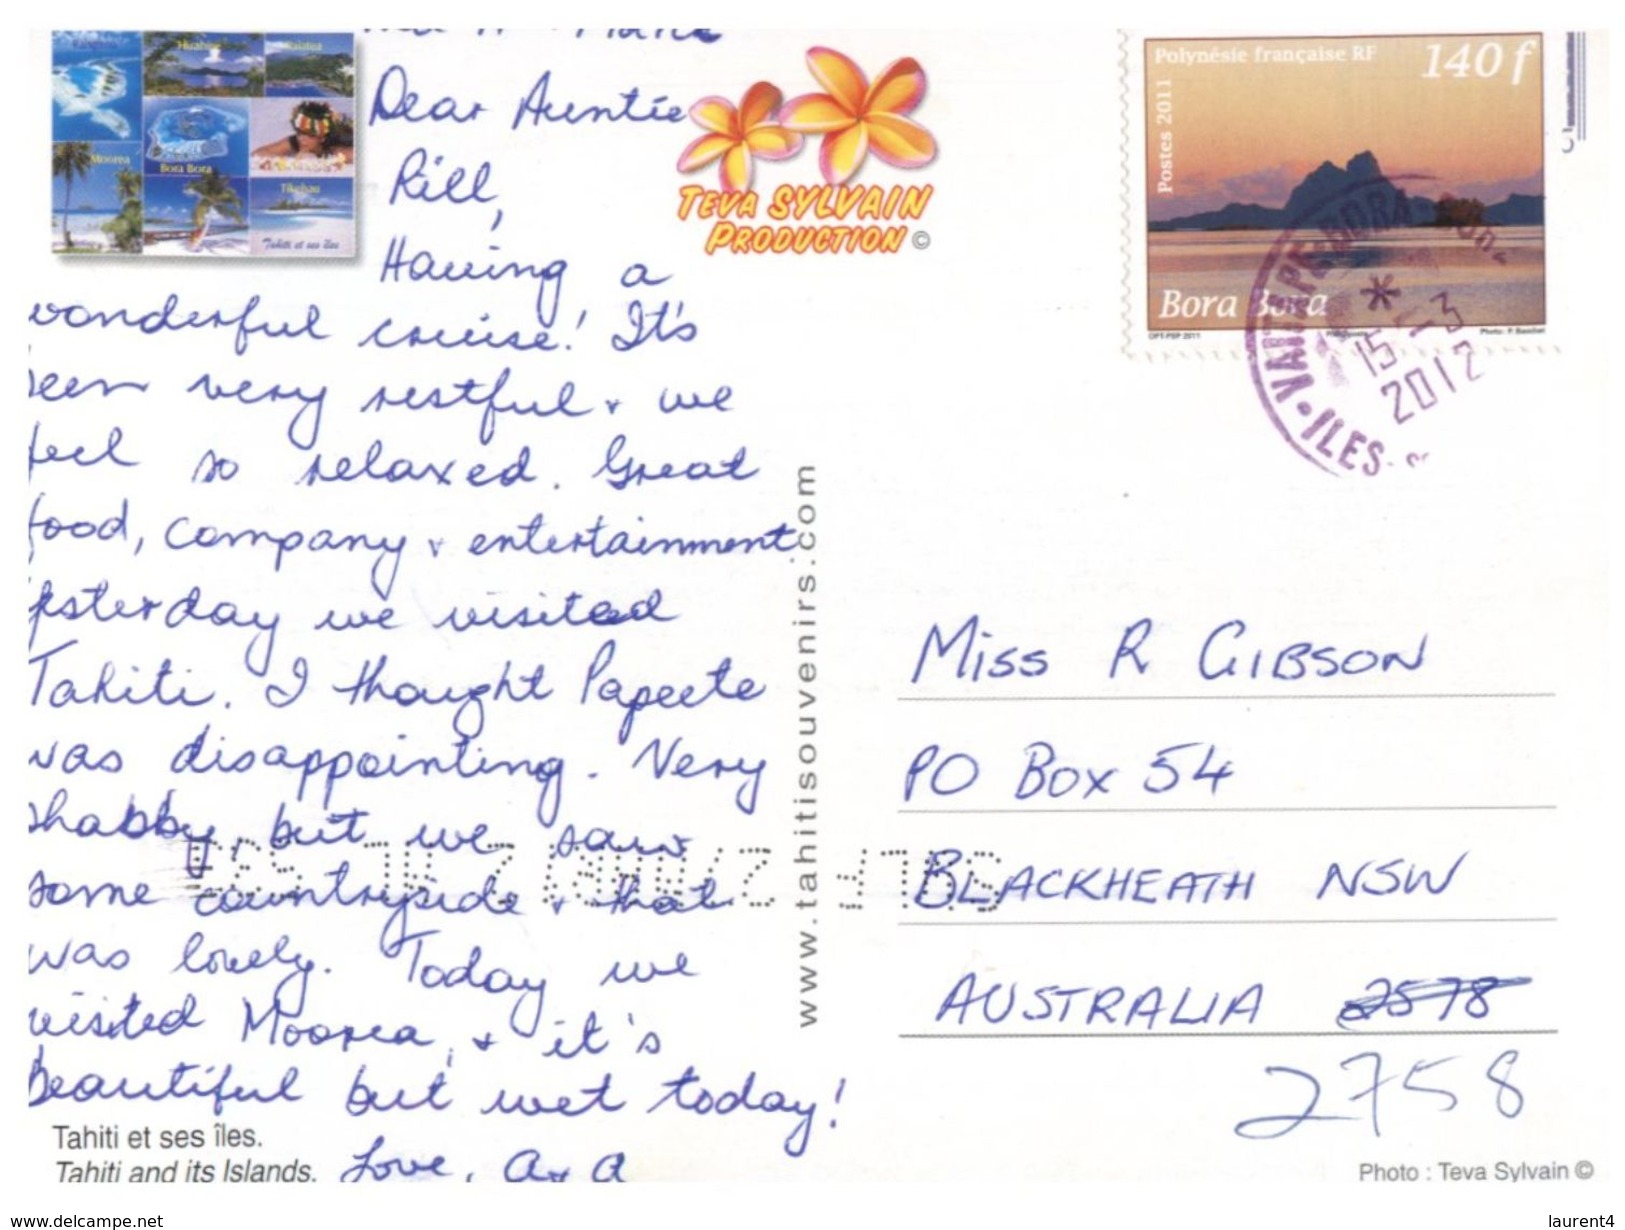 Huahine
Moorea
Bora Bora
Tikehau
Tahiti et ses îles
Dear Auntie
Rill,
Having a
wonderful cruise! It's
been very restful + we
feel so relaxed. Great
food, company + entertainment
Yesterday we visited
Tahiti. I thought Papeete
was disappointing. Very
shabby but we saw
some countryside + that
was lovely. Today we
visited Moorea, + it's
beautiful but wet today!
Love,
Tahiti et ses îles.
Tahiti and its Islands.
TEVA SYLVAIN
PRODUCTION ©
www.tahitisouvenirs.com
Polynésie française RF
140 f
Postes 2011
Bora Bora
15 -3
2012
ILES
MISS R GIBSON
PO BOX 54
BLACKHEATH NSW
AUSTRALIA 2578
2758
Photo : Teva Sylvain ©
www.delcampe.net
laurent4